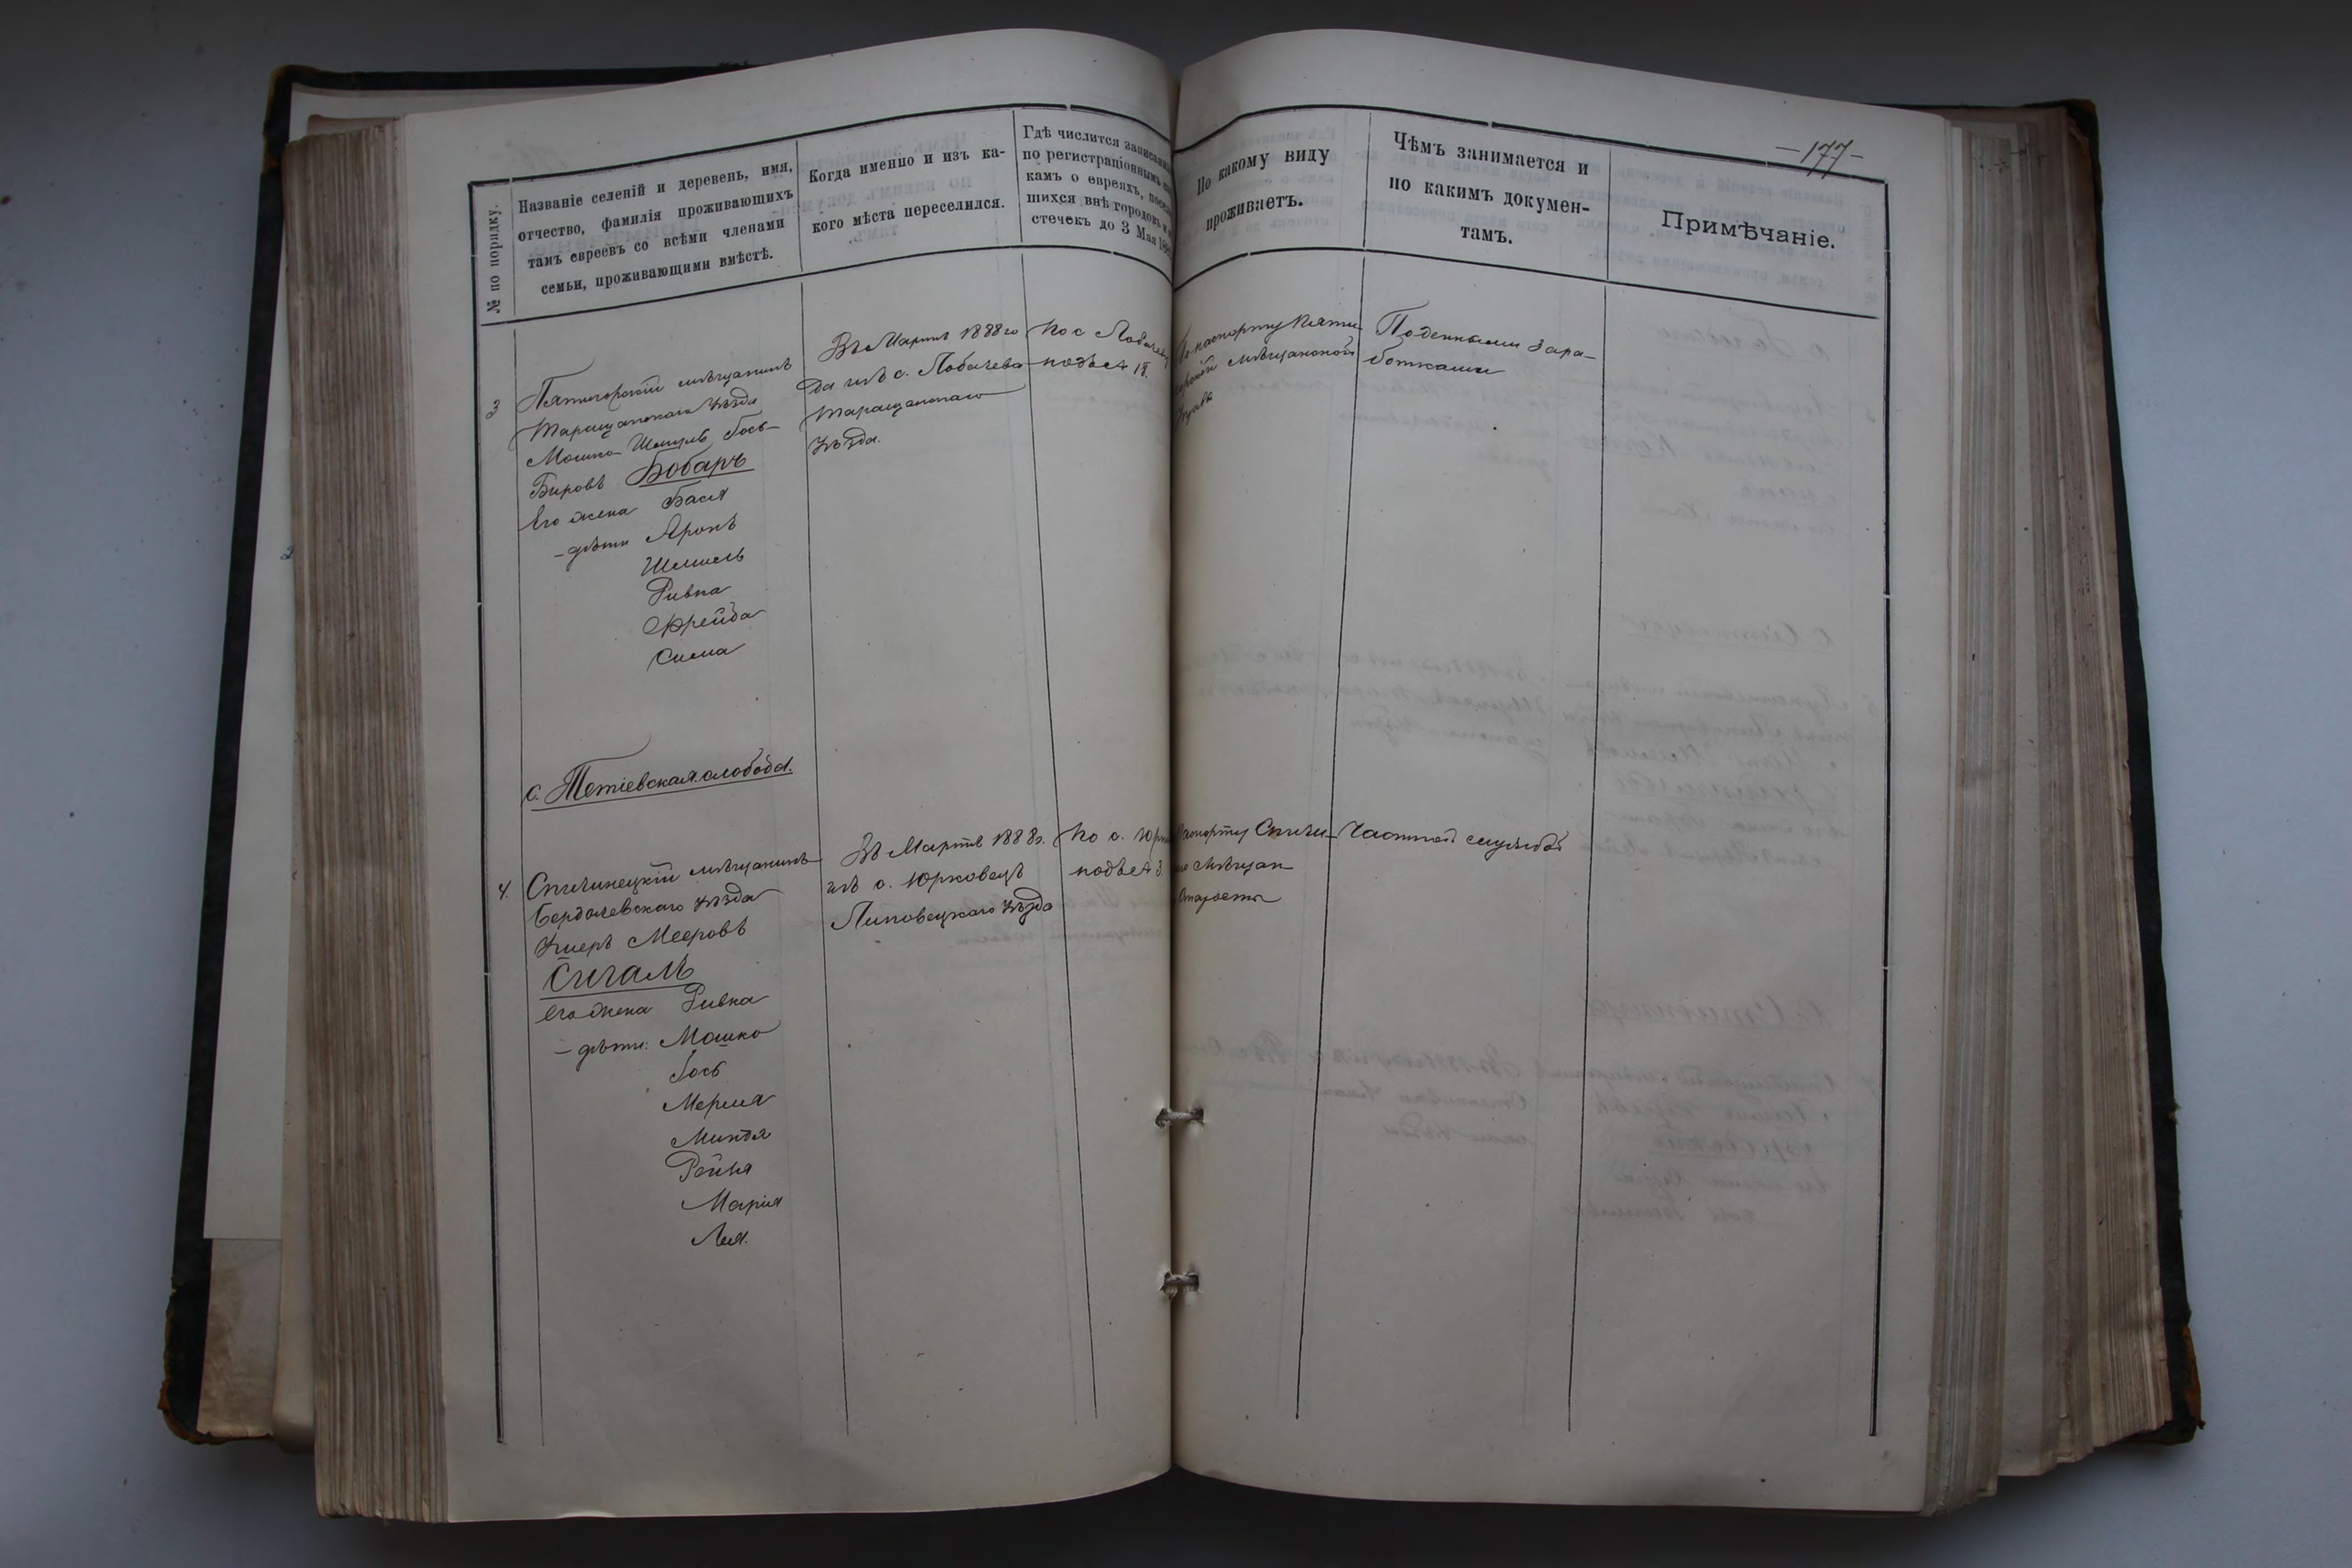 -177-
№ по порядку.
Названіе селеній и деревень, имя,
отчество, фамилія проживающихъ
тамъ евреевъ со всѣми членами
семьи, проживающими вмѣстѣ.
Когда именно и изъ ка-
кого мѣста переселился.
Гдѣ числится
по регистраціоннымъ
камъ о евреяхъ,
шихся внѣ городовъ
стечекъ до 3 Мая
По какому виду
проживаетъ.
Чѣмъ занимается и
по какимъ докумен-
тамъ.
Примѣчаніе.
3
Пятигорскій мѣщанинъ
Таращанскаго уѣзда
Мошко Ось-
Беровъ Бобаръ
его жена Бася
- дѣти Аронъ
Шмиель
Ривка
Фрейда
Сима
Въ Мартѣ 1888 го
да изъ с. Лобачева
Таращанскаго
уѣзда.
по с
подъ № 18.
По паспорту Пяти
мѣщанской
Поденными зара-
ботками
с. Тетіевская слобода.
4.
Спичинецкій мѣщанинъ
Бердичевскаго уѣзда
Мееровъ
Сигалъ
его жена Ривка
- дѣти: Мошко
Іось
Мерля
Миндя
Рейзя
Марія
Лея.
Въ Мартѣ 1888 г.
изъ с. Юрковецъ
Липовецкаго уѣзда
по с.
подъ № 3
паспорту Спичи-
мѣщан
старосты
Частной службой